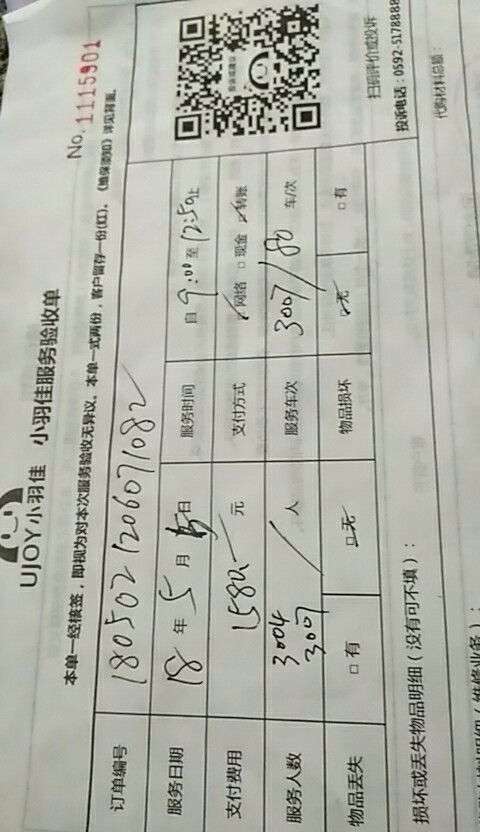 UJOY小羽佳 小羽佳服务验收单
No. 1115901
本单一经核签，即视为对本次服务验收无异议。本单一式两份，客户留存一份(红)。《维保须知》详见背面。
订单编号 1805021206071082
服务日期 18 年 5 月 日 服务时间 自 9:00 至 12:50 止
支付费用 1580 元 支付方式 ☑网络 □现金 ☑转账
服务人数 3004 3007 / 人 服务车次 3007/80 车/次
物品丢失 □有 □无 物品损坏 ☑无 □有
扫码评价或投诉
投诉电话：0592-5178888
损坏或丢失物品明细（没有可不填）：
代购材料总额：